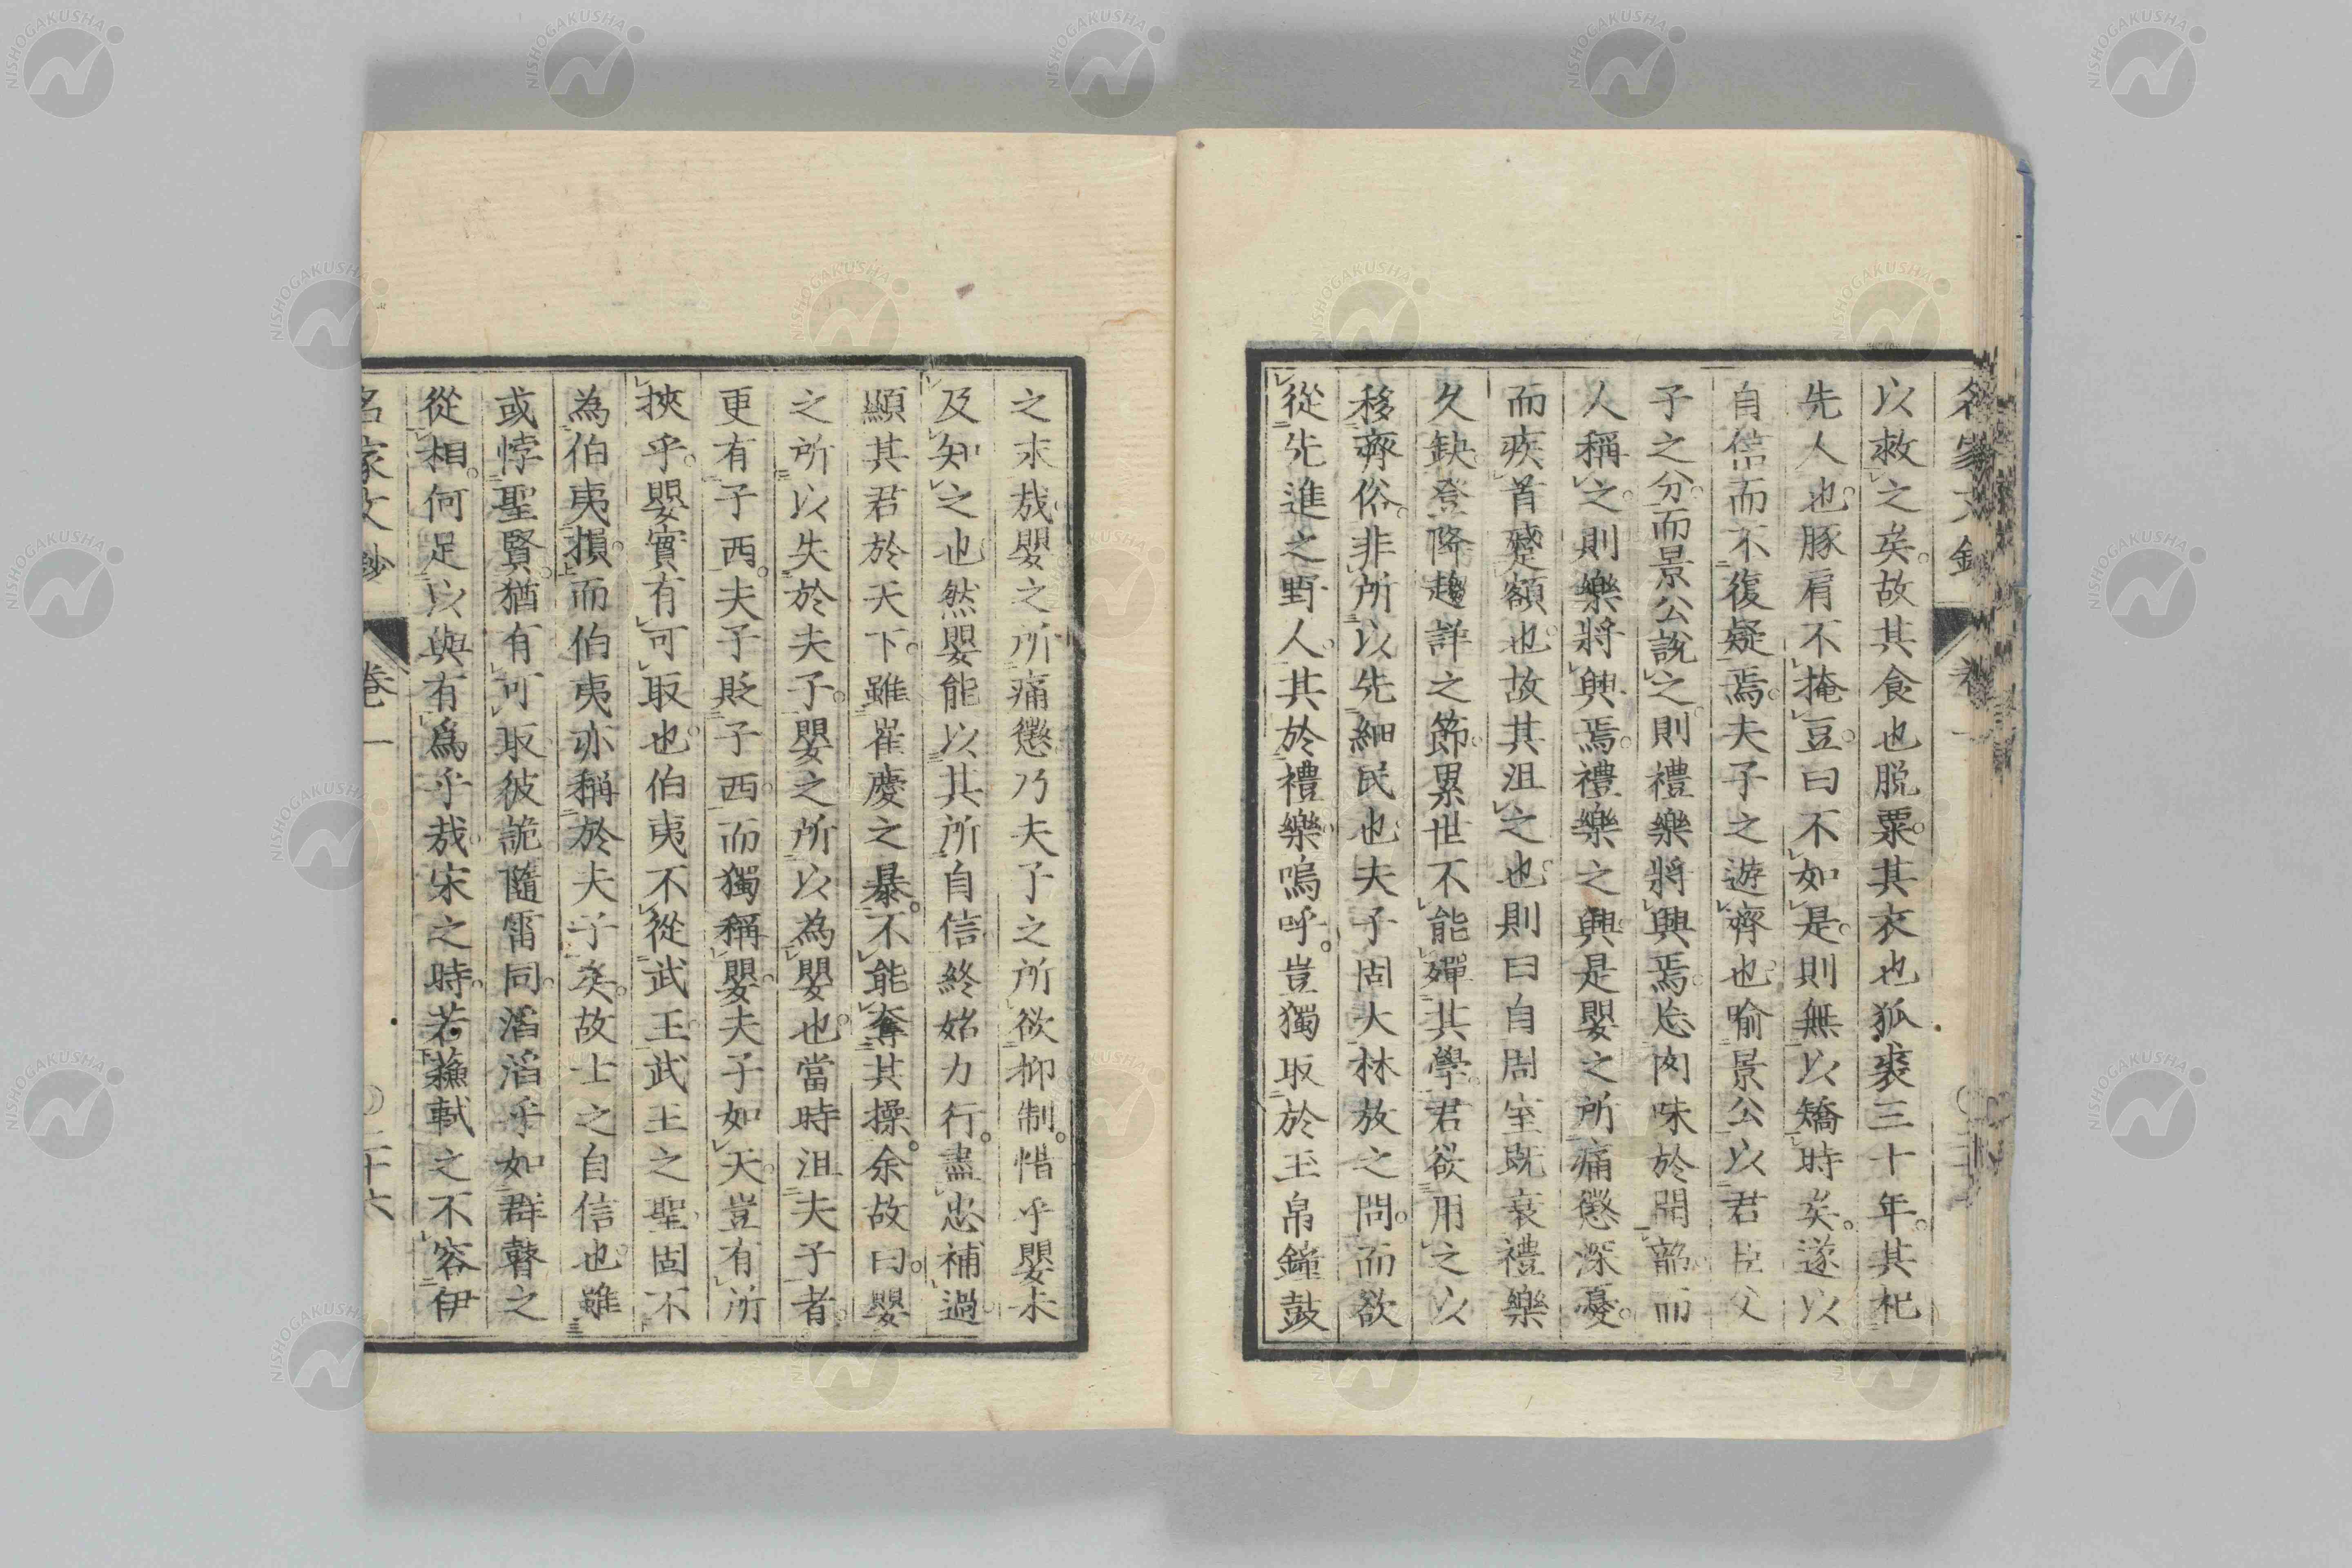 以救之矣。故其食也脱粟。其衣也狐裘三十年。其祀
先人也。豚肩不掩豆。曰不如是。則無以矯時矣。遂以
自信而不復疑焉。夫子之遊齊也。喻景公以君臣父
子之分。而景公說之。則禮樂將興焉。忘肉味於聞韶。而
人稱之。則樂將興焉。禮樂之興。是嬰之所痛懲深憂。
而疾首蹙額也。故其沮之也。則曰自周室既衰禮樂
久缺。登降趨詳之節。累世不能殫其學。君欲用之以
移齊俗。非所以先細民也。夫子固大林放之問。而欲
從先進之野人。其於禮樂。嗚呼。豈獨取於玉帛鐘鼓
之末哉。嬰之所痛懲。乃夫子之所欲抑制。惜乎嬰未
及知之也。然嬰能以其所自信。終始力行。盡忠補過。
顯其君於天下。雖崔慶之暴。不能奪其操。余故曰。嬰
之所以失於夫子。嬰之所以為嬰也。當時沮夫子者。
更有子西。夫子貶子西。而獨稱嬰。夫子如天。豈有所
挾乎。嬰實有可取也。伯夷不從武王。武王之聖。固不
為伯夷損。而伯夷亦稱於夫子矣。故士之自信也。雖
或悖聖賢。猶有可取。彼詭隨雷同。滔滔乎如群瞽之
從相。何足以與有爲乎哉。宋之時。若蘇軾之不容伊
名家文鈔
卷一
二十六
NISHOGAKUSHA